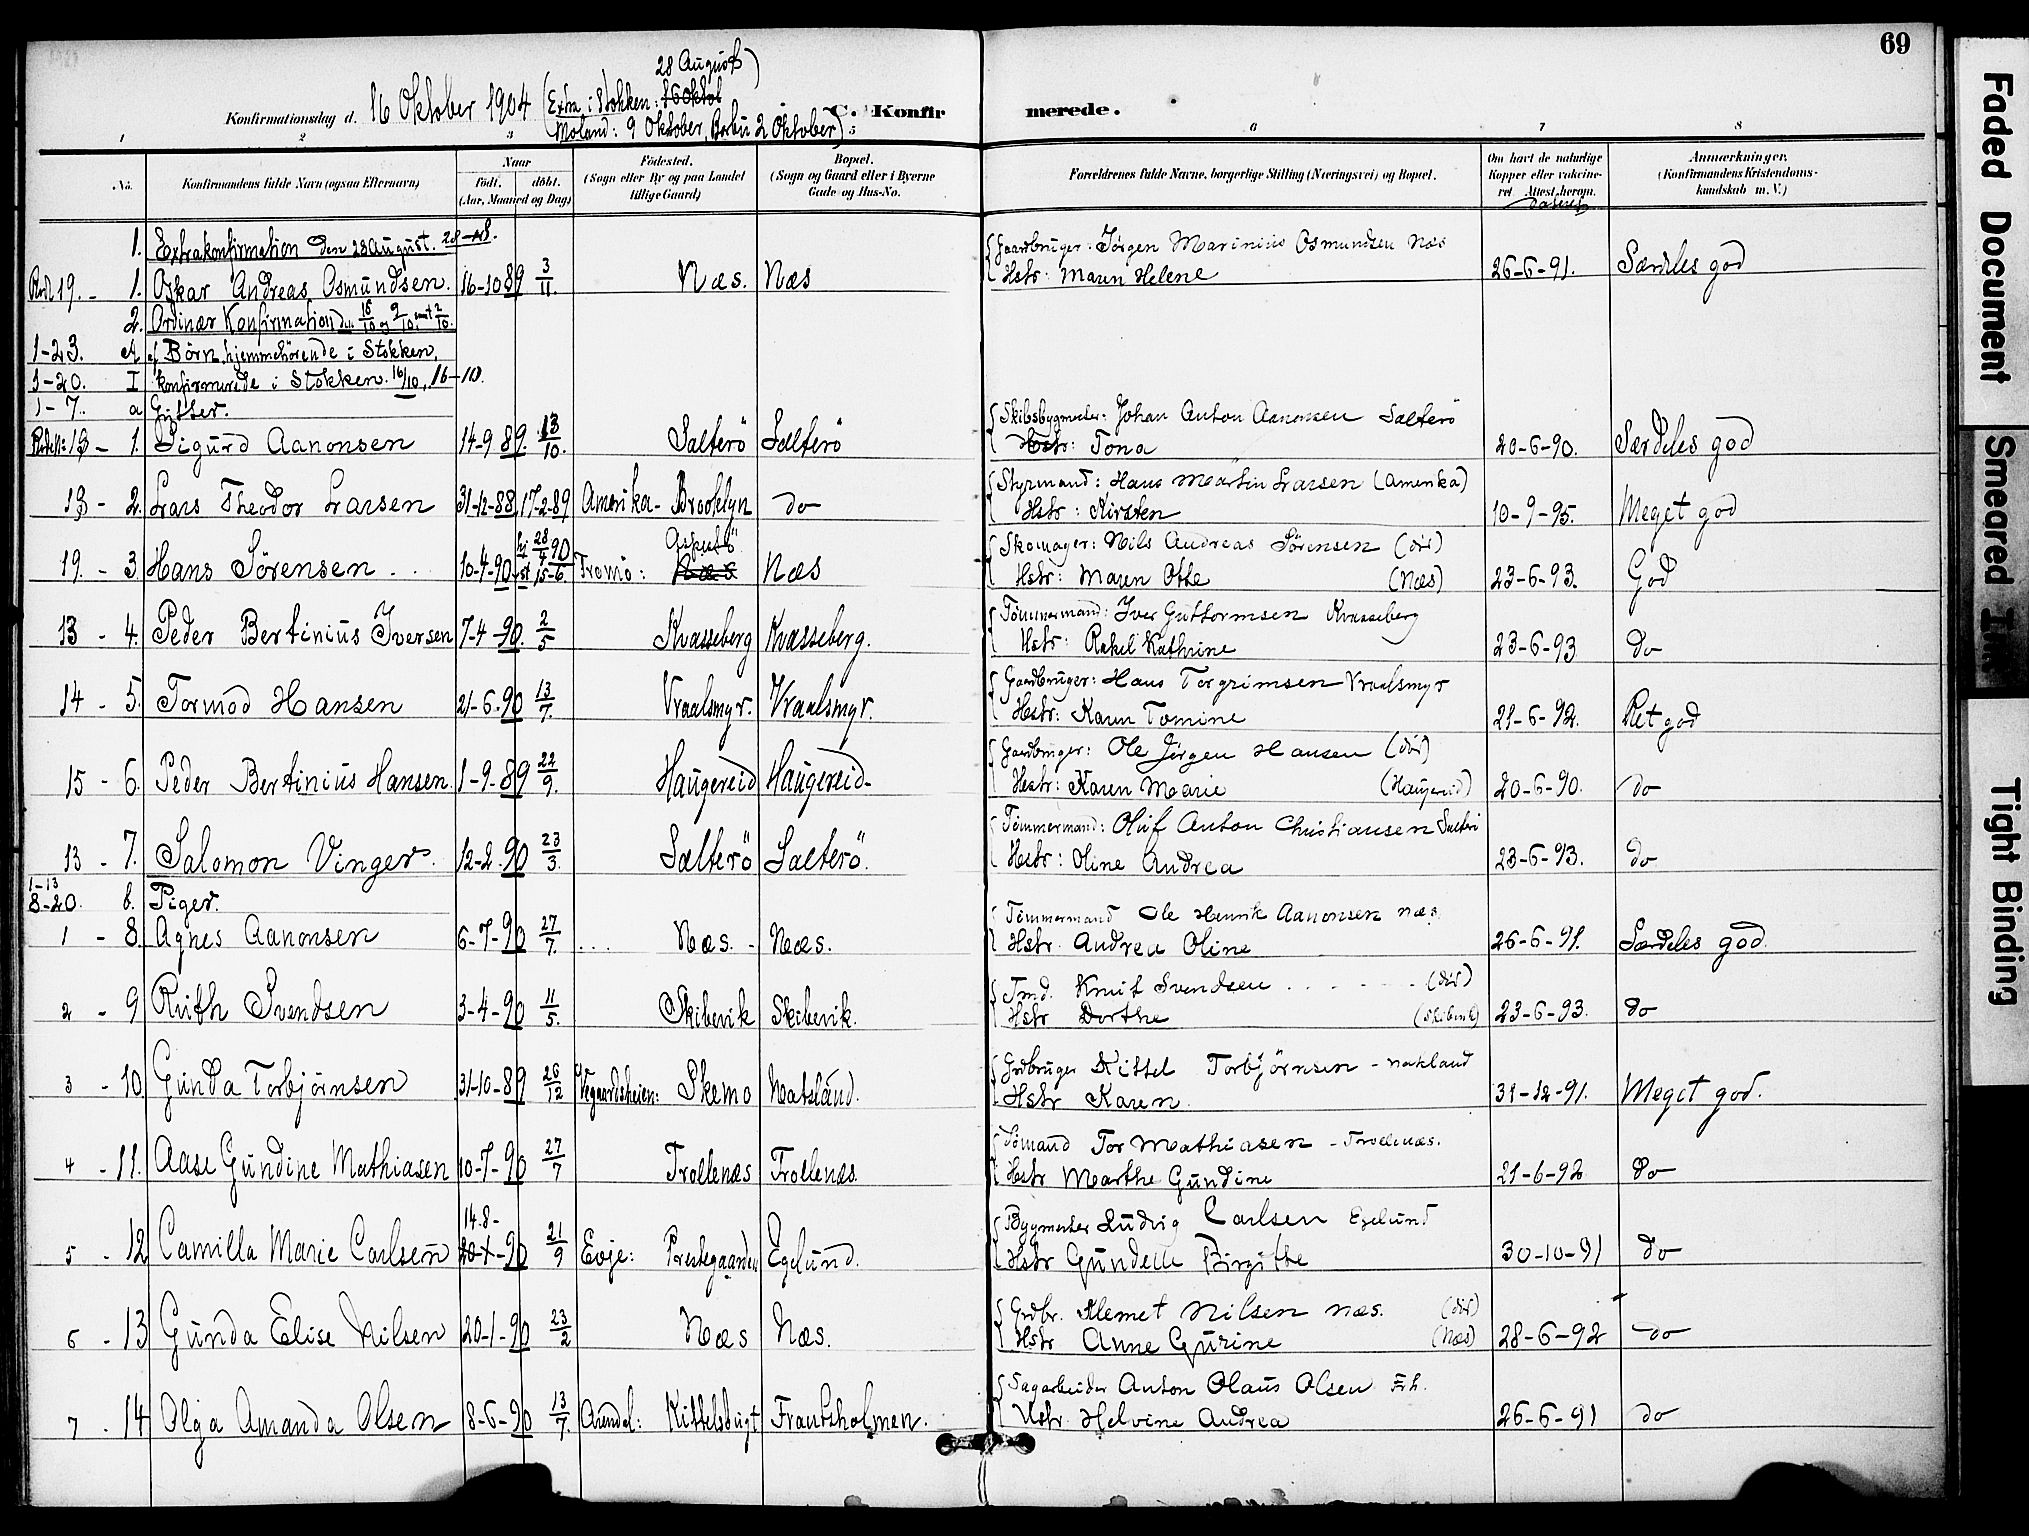 69
28 August)
Konfirmationsdag d. 16 Oktober 1904 (Extra i Stokken: 16 Oktob
Moland: 9 Oktober, Barbu 2 Oktober)
C. Konfirmerede.
1 2 3 5 6 7 8
No. Konfirmandens fulde Navn (ogsaa Efternavn) Naar født. døbt. (Aar, Maaned og Dag) Fødested. (Sogn eller By og paa Landet tillige Gaard) Bopæl. (Sogn og Gaard eller i Byerne Gade og Hus-No. Forældrenes fulde Navne, borgerlige Stilling (Næringsvei) og Bopæl. Om havt de naturlige Kopper eller vakcineret. Attest herom. dateret Anmærkninger. (Konfirmandens Kristendomskundskab m. V.)
1. Extrakonfirmation den 28 August. 28-8.
Gaardbruger: Jørgen Marinius Osmundsen Næs
19. - 1. Oskar Andreas Osmundsen. 16-10 89 3/11. Næs. Næs Hstr: Maren Helene 26-6-91. Særdeles god
2. Ordinær Konfirmation den 16/10 og 9/10, samt 2/10.
1-23. A af Børn, hjemmehørende i Stokken,
1-20. I konfirmerede i Stokken. 16/10, 16-10.
1-7. a Gutter.
Skibsbygmester: Johan Anton Aanonsen Salterö
13 - 1. Sigurd Aanonsen 14-9 89. 13/10. Salterö Salterö Hstr: Tona 20-6-90. Særdeles god
Styrmand: Hans Martin Larsen (Amerika)
13 - 2. Lars Theodor Larsen 31-12-88 17-2-89 Amerika - Brooklyn do Hstr: Kirsten 10-9-95. Meget god
hj 28/4 90 Skomager: Nils Andreas Sörensen (död)
19. - 3 Hans Sörensen 10-4-90 st 15-6 Tromö: Næs Næs Hstr: Maren Othe (Næs) 23-6-93. God
Tömmermand: Iver Guttormsen Kvasseberg
13 - 4. Peder Bertinius Iversen 7-4-90. 2/5 Kvasseberg Kvasseberg. Hstr: Rakel Kathrine 23-6-93 do
Gaardbruger: Hans Torgrimsen Vraalsmyr
14 - 5. Tormod Hansen 21-6-90 13/7. Vraalsmyr. Vraalsmyr. Hstr: Karen Tomine 21-6-92. Ret god
Gaardbruger: Ole Jörgen Hansen (död)
15 - 6. Peder Bertinius Hansen 1-9-89 22/9. Haugereid Haugereid Hstr: Karen Marie (Haugereid) 20-6-90. do
Tömmermand: Oluf Anton Christiansen
13 - 7. Salomon Vinger. 12-2-90 23/3. Salterö Salterö. Hstr: Oline Andrea 23-6-93. do
1-13
8-20. b. Piger.
Tömmermand Ole Henrik Aanonsen Næs
1 - 8. Agnes Aanonsen 6-7-90 27/7. Næs. - Næs. Hstr. Andrea Oline 26-6-91. Særdeles god.
Tmd. Knut Svendsen (död)
2 - 9 Ruth Svendsen 3-4-90 11/5. Skibevik Skibevik. Hstr Dorthe (Skibevik) 23-6-93. do
Grdbruger Kittel Torbjörnsen - Natsland
3 - 10 Gunda Torbjörnsen 31-10-89 26/12 Vegaardsheien: Skemo Natsland. Hstr Karen. 31-12-91. Meget god.
Sömand Tor Mathiasen - Trollenæs.
4 - 11. Aase Gundine Mathiasen 10-7-90 27/7 Trollenæs Trollenæs. Hstr Marthe Gundine 21-6-92 do
14.8- Bygmester Ludvig Carlsen Egelund
5 - 12 Camilla Marie Carlsen 90 21/9 Evje: Prestegaarden Egelund. Hstr Gundelle Birgithe 30-10-91 do
Grdbr. Klemet Nilsen Næs. (död)
6 - 13 Gunda Elise Nilsen 20-1-90 23/2 Næs Næs. Hstr Anne Gurine (Næs) 28-6-92 do
Sagarbeider Anton Olaus Olsen Frh.
7 - 14 Olga Amanda Olsen 8-6-90 13/7. Arendal: Kittelsbugt Frantsholmen. Hstr. Helvine Andrea 26-6-91 do
Faded Document
Smeared Ink
Tight Binding